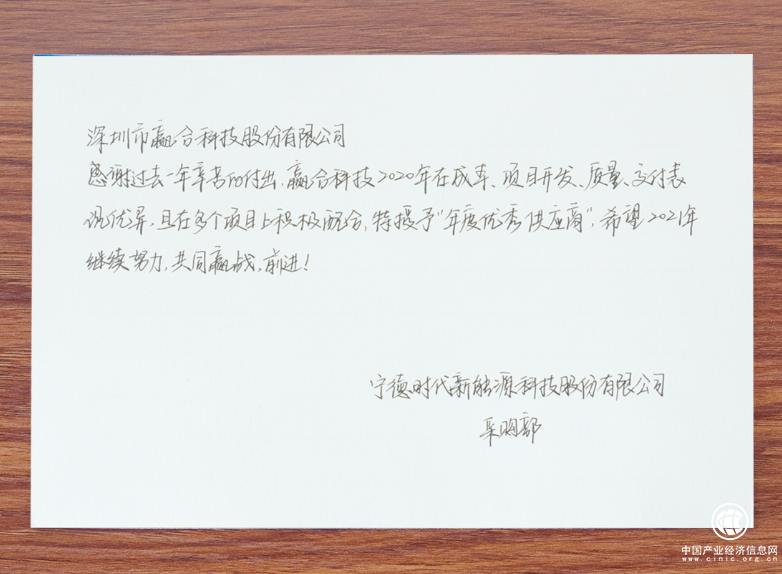 深圳市赢合科技股份有限公司
感谢过去一年辛苦的付出,赢合科技2020年在成本、项目开发、质量、交付表
现优异,且在多个项目上积极配合,特授予"年度优秀供应商",希望2021年
继续努力,共同赢战,前进!
宁德时代新能源科技股份有限公司
采购部
中国产业经济信息网
www.cinic.org.cn